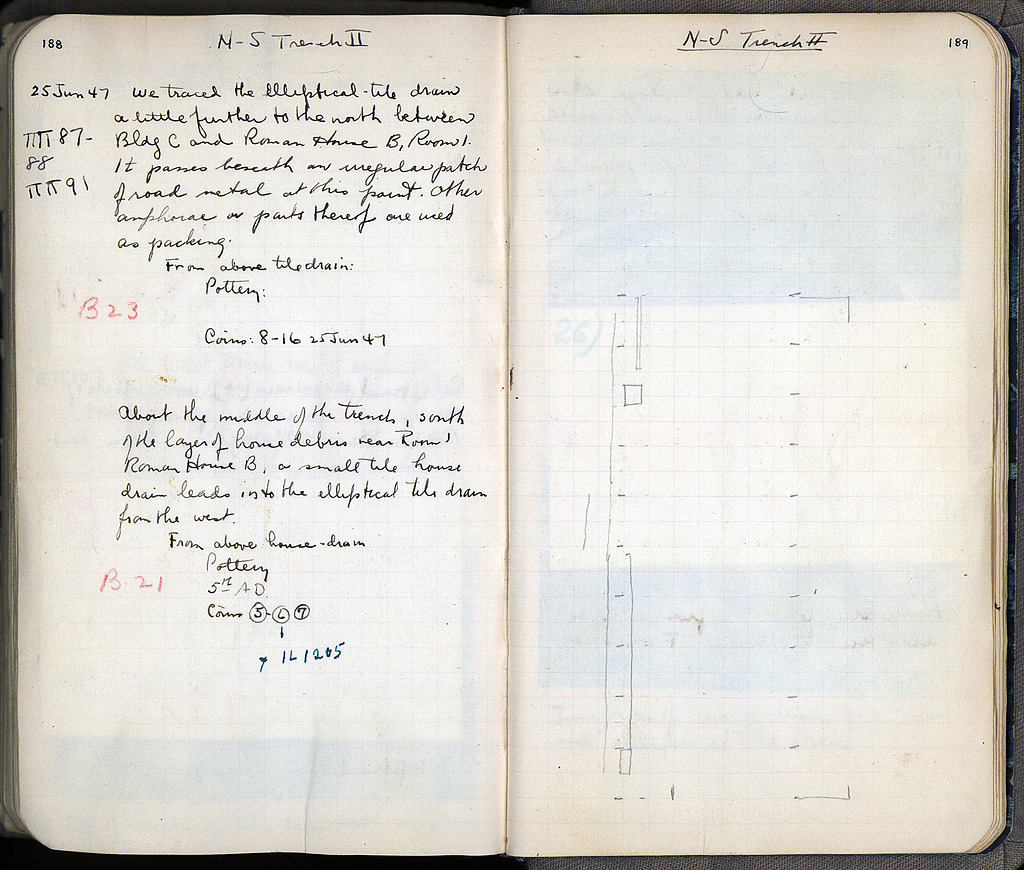 188
N-S Trench II
25 Jun 47 we traced the elliptical-tile drain
a little further to the north between
ΠΠ 87-
88
Bldg C and Roman House B, Room 1.
It passes beneath an irregular patch
ΠΠ 91
of road metal at this point. Other
amphorae or parts thereof are used
as packing.
From above tile drain:
Pottery:
B 23
Coins: 8-16 25 Jun 47
About the middle of the trench, south
of the layer of house debris near Room 1
Roman House B, a small tile house
drain leads into the elliptical tile drain
from the west.
From above house-drain
Pottery
B-21
5th AD.
Coins 5-6 7
IL 1205
N-S Trench II
189